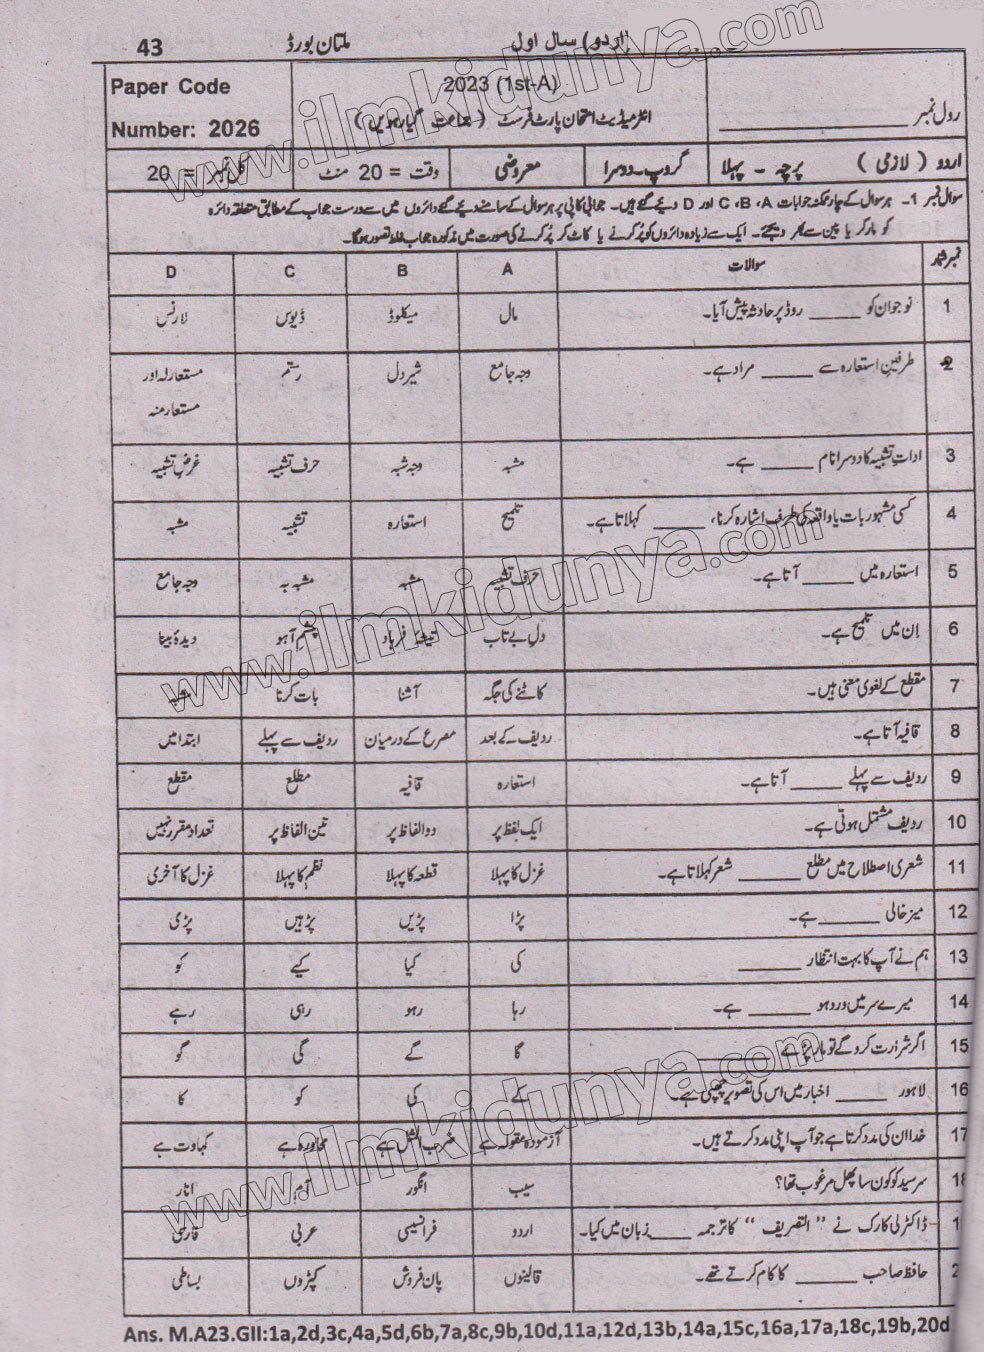 43 ملتان بورڈ (اردو) سال اول
Paper Code
Number: 2026
2023 (1st-A)
انٹرمیڈیٹ امتحان پارٹ فرسٹ (جماعت گیارہویں)
رول نمبر
اردو (لازمی) پرچہ - پہلا گروپ۔دوسرا معروضی وقت = 20 منٹ کل نمبر = 20
سوال نمبر 1- ہر سوال کے چار ممکنہ جوابات A، B، C اور D دیئے گئے ہیں۔ جوابی کاپی پر ہر سوال کے سامنے دیئے گئے دائروں میں سے درست جواب کے مطابق متعلقہ دائرہ
کو مارکر یا پین سے بھر دیجئے۔ ایک سے زیادہ دائروں کو پُر کرنے یا کاٹ کر پُر کرنے کی صورت میں مذکورہ جواب غلط تصور ہوگا۔
نمبر شمار سوالات A B C D
1 نوجوان کو ______ روڈ پر حادثہ پیش آیا۔ مال میکلوڈ ڈیوس لارنس
2 طرفین استعارہ سے ______ مراد ہے۔ وجہ جامع شیر دل رستم مستعارلہ اور
مستعار منہ
3 ادات تشبیہ کا دوسرا نام ______ ہے۔ مشبہ وجہ شبہ حرف تشبیہ غرضِ تشبیہ
4 کسی مشہور بات یا واقعہ کی طرف اشارہ کرنا، ______ کہلاتا ہے۔ تلمیح استعارہ تشبیہ مشبہ
5 استعارہ میں ______ آتا ہے۔ حرف تشبیہ مشبہ مشبہ بہ وجہ جامع
6 اِن میں تلمیح ہے۔ دلِ بے تاب تیشۂ فرہاد چشمِ آہو دیدۂ بینا
7 مقطع کے لغوی معنی ہیں۔ کاٹنے کی جگہ آشنا بات کرنا مشبہ
8 قافیہ آتا ہے۔ ردیف کے بعد مصرع کے درمیان ردیف سے پہلے ابتدا میں
9 ردیف سے پہلے ______ آتا ہے۔ استعارہ قافیہ مطلع مقطع
10 ردیف مشتمل ہوتی ہے۔ ایک لفظ پر دو الفاظ پر تین الفاظ پر تعداد مقرر نہیں
11 شعری اصطلاح میں مطلع ______ شعر کہلاتا ہے۔ غزل کا پہلا قطعہ کا پہلا نظم کا پہلا غزل کا آخری
12 میز خالی ______ ہے۔ پڑا پڑیں پڑہیں پڑی
13 ہم نے آپ کا بہت انتظار ______ کی کیا کیے کو
14 میرے سر میں درد ہو ______ ہے۔ رہا رہو رہی رہے
15 اگر شرارت کرو گے تو مار پڑے ______ گا گے گی گو
16 لاہور ______ اخبار میں اس کی تصویر چھپی ہے۔ کے کی کو کا
17 خدا ان کی مدد کرتا ہے جو آپ اپنی مدد کرتے ہیں۔ آزمودہ مقولہ ہے ضرب المثل ہے محاورہ ہے کہاوت ہے
18 سرسید کو کون سا پھل مرغوب تھا؟ سیب انگور آم انار
1 ڈاکٹر لی کارک نے "التصریف" کا ترجمہ ______ زبان میں کیا۔ اردو فرانسیسی عربی فارسی
2 حافظ صاحب ______ کا کام کرتے تھے۔ قالینوں پان فروش کپڑوں بساطی
Ans. M.A23.GII:1a,2d,3c,4a,5d,6b,7a,8c,9b,10d,11a,12d,13b,14a,15c,16a,17a,18c,19b,20d
www.ilmkidunya.com
www.ilmkidunya.com
www.ilmkidunya.com